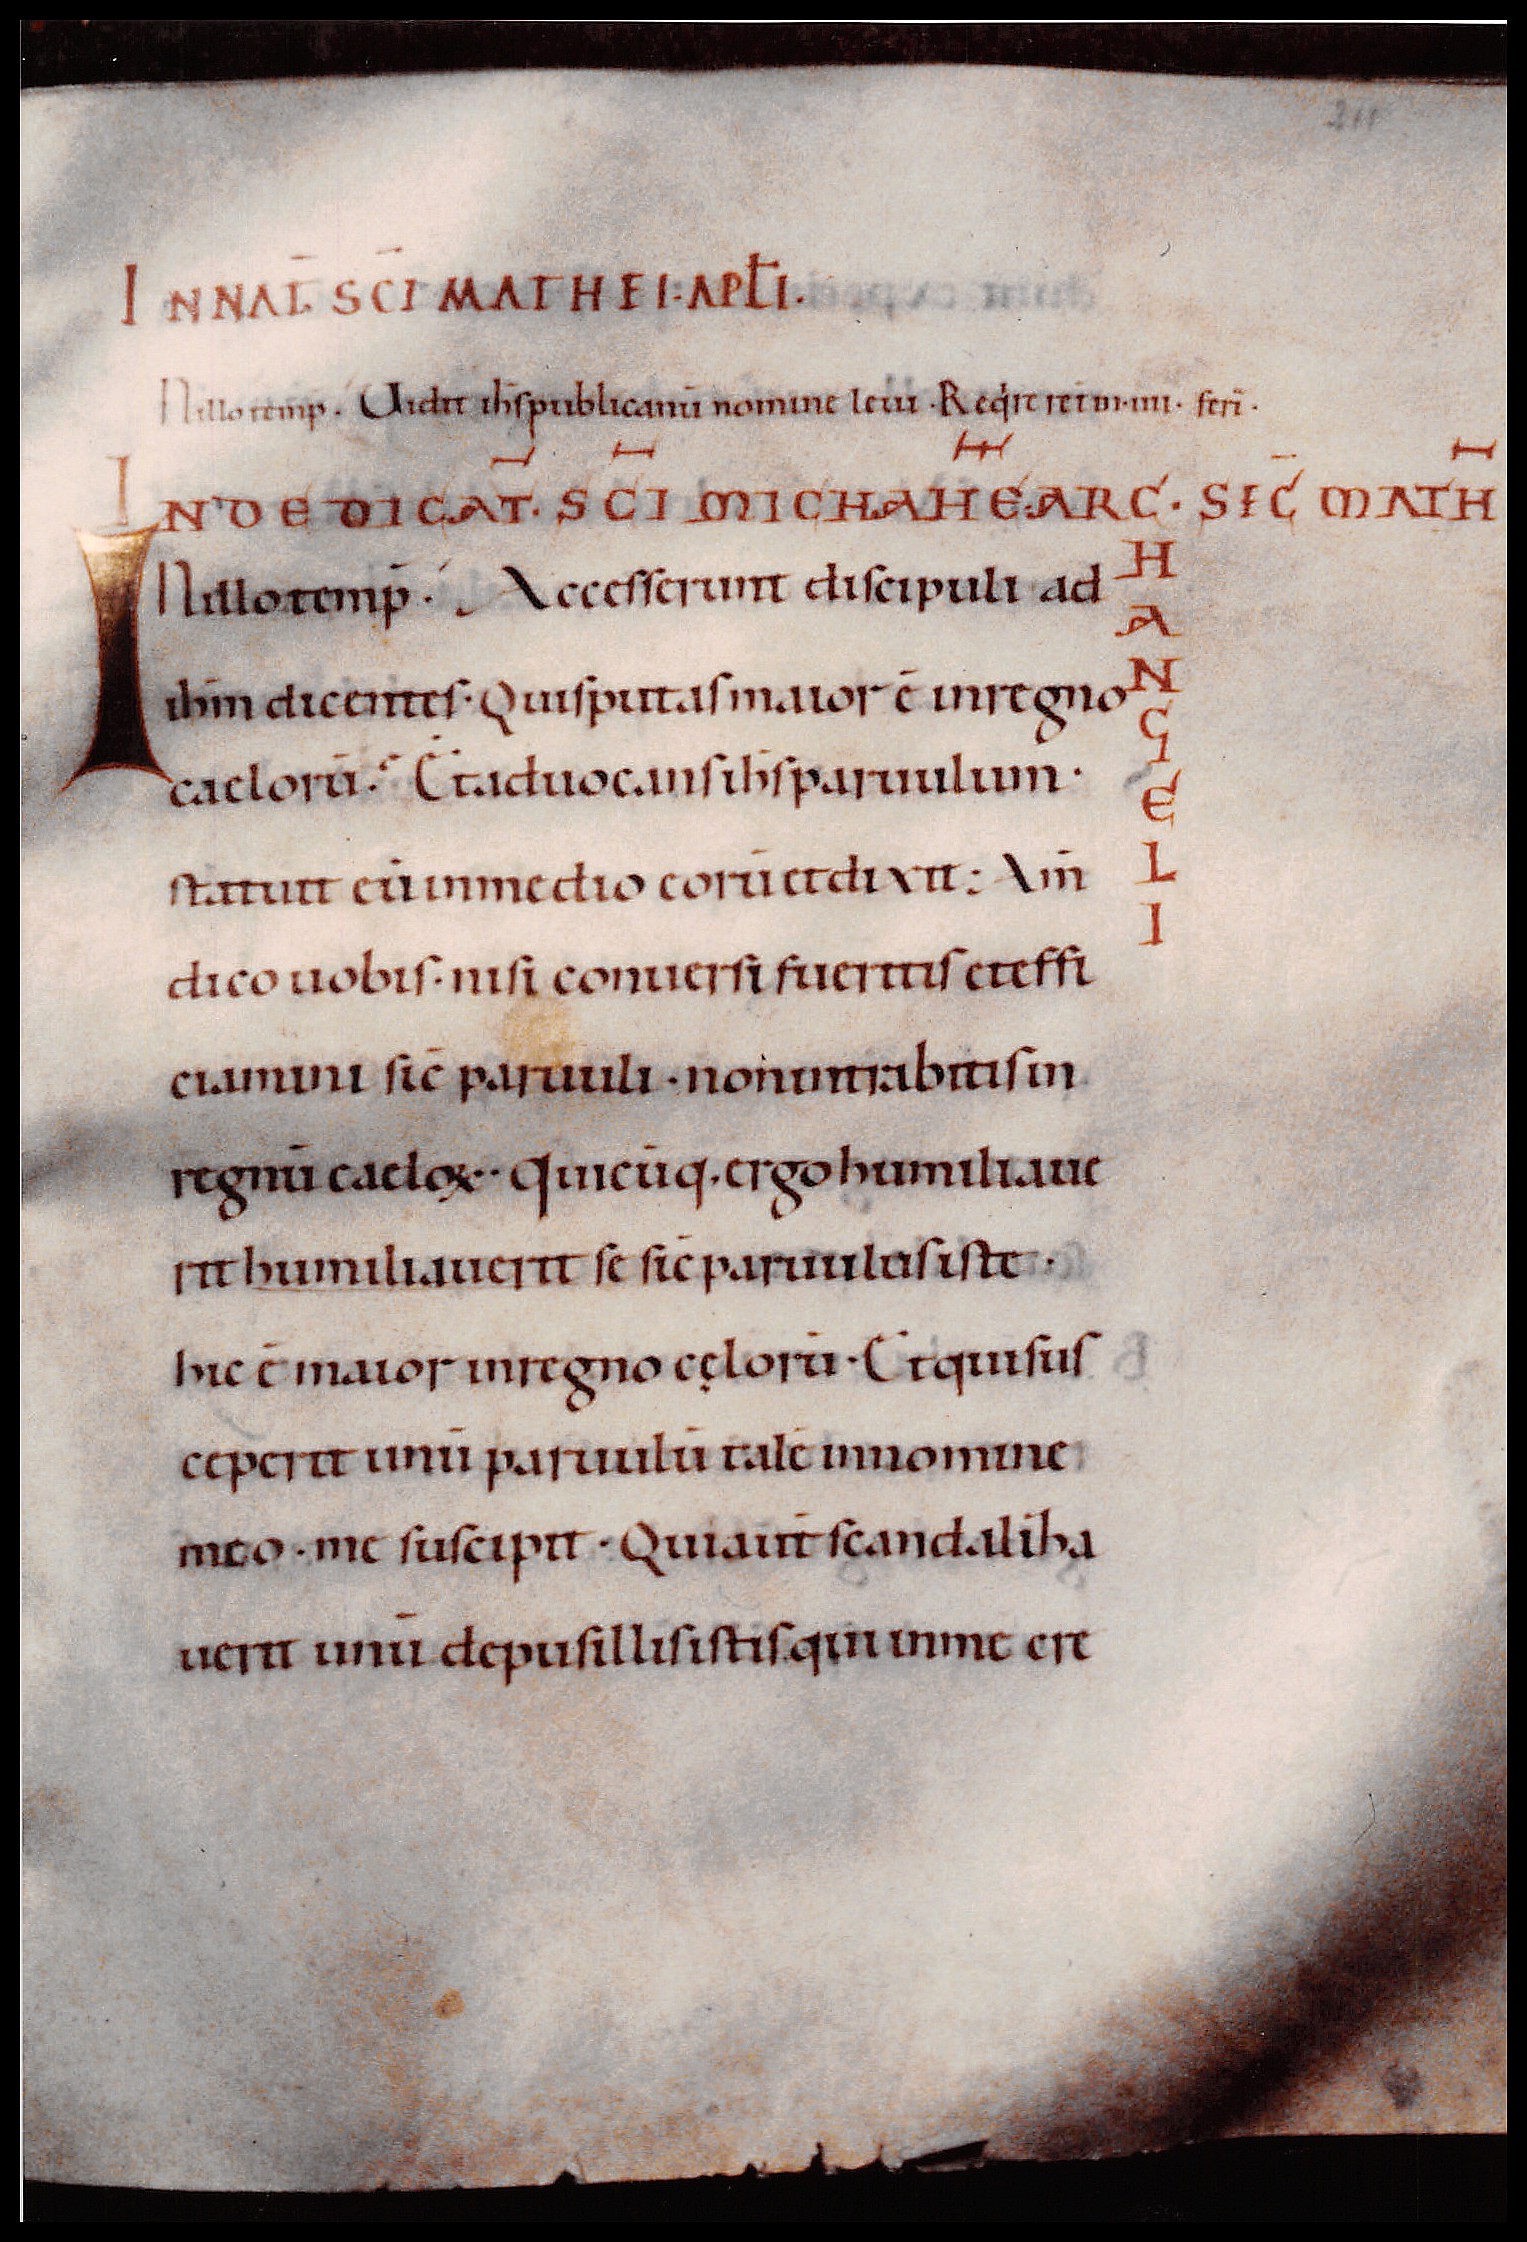 INNAL̄ SC̄I MATHEI·APL̄I·
N illo temp̄. Uidit ih̄s publicanū nomine leui · Req̄re retro·iiii· feri̅·
IN DEDICAT̄· SC̄I MICHAHE·ARC̄· SEC̄ MATH
H
A
N
G
E
L
I
IN illo temp̄·´ Accesserunt discipuli ad
ihm̄ dicentes· Quis putas maior ē in regno
caelorū·´ Et aduocans ih̄s paruulum·
statuit eū in medio eorū et dixit: Am̄
dico uobis· nisi conuersi fueritis et effi
ciamini sic̄ paruuli · non intrabitis in
regnū caeloꝝ·· quicūq· ergo humiliaue
rit humiliauerit se sic̄ paruulus iste ·
hic ē maior in regno cęlorū · Et qui sus
ceperit unū paruulū talē in nomine
meo · me suscipit · Qui aut̄ scandaliha
uerit unū de pusillis istis qui in me cre